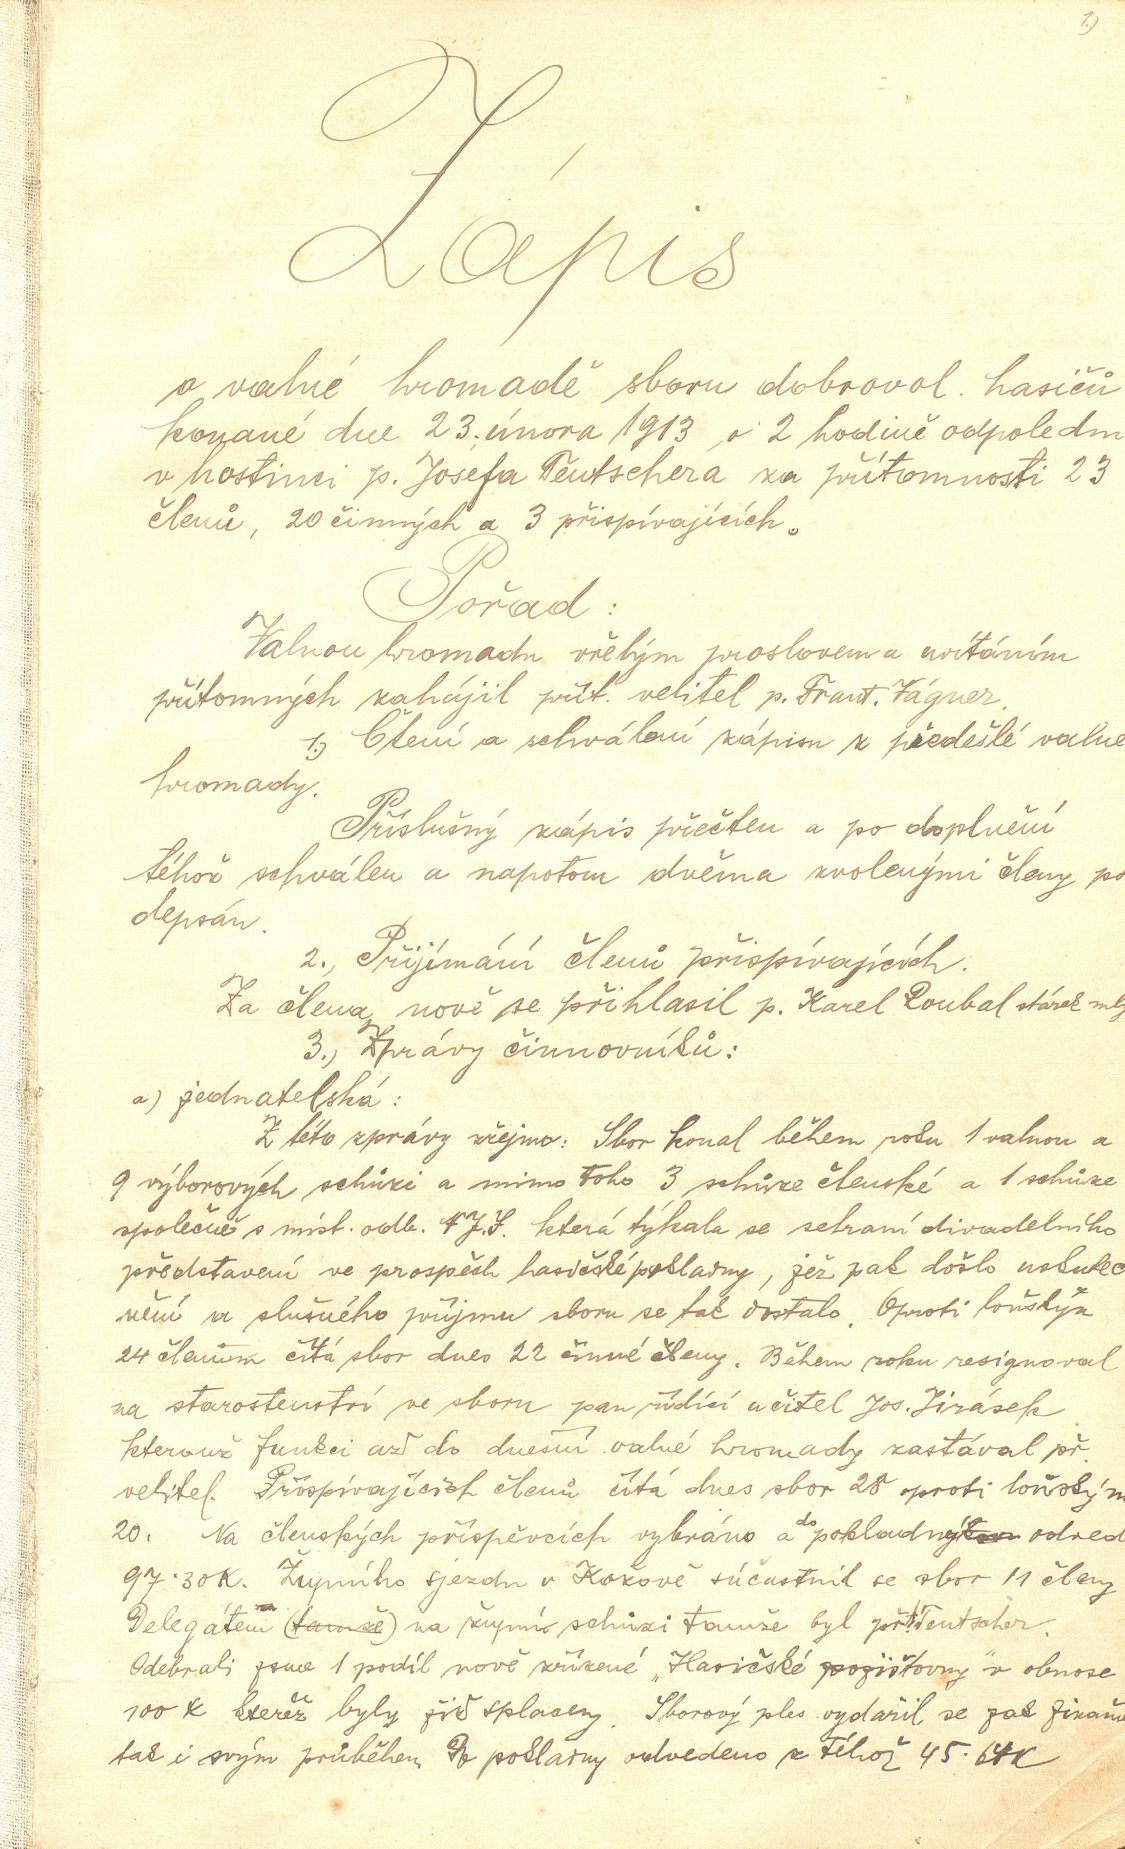 1.)
Zápis
o valné hromadě sboru dobrovol. hasičů
konané dne 23. února 1913 o 2 hodině odpoledn
v hostinci p. Josefa Teutschera za přítomnosti 23
členů, 20 činných a 3 přispívajících.
Pořad:
Valnou hromadu vřelým proslovem a uvítáním
přítomných zahájil přít. velitel p. Frant. Vágner.
1.) Čtení a schválení zápisu z předešlé valné
hromady.
Příslušný zápis přečten a po doplnění
téhož schválen a napotom dvěma zvolenými členy po
depsán.
2., Přijímání členů přispívajících.
Za člena nově se přihlasil p. Karel Roubal stárek mlý
3., Zprávy činnovníků:
a) jednatelská:
Z této zprávy zřejmo: Sbor konal během roku 1 valnou a
9 výborových schůzi a mimo toho 3 schůze členské a 1 schůze
společně s míst. odb. N.J.S. která týkala se sehraní divadelního
představení ve prospěch hasičské pokladny, jež pak došlo uskuteč
nění a slušného příjmu sboru se tak dostalo. Oproti loňským
24 členům čítá sbor dnes 22 činné členy. Během roku resignoval
na starostenství ve sboru pan řídící učitel Jos. Jirásek
kterouž funkci až do dnešní valné hromady zastával př.
velitel. Přispívajících členů čítá dnes sbor 28 oproti loňským
20. Na členských příspěvcích vybráno a do pokladny odved
97·30K. Župního sjezdu v Kokově súčastnil se sbor 11 členy
Delegátem (tamže) na župní schůzi tamže byl př. Teutscher.
Odebrali jsme 1 podíl nově zřízené "Hasičské pojišťovny" v obnose
100 K kteréž byly již splaceny. Sborový ples vydařil se jak finanč
tak i svým průběhem. Do pokladny odvedeno z téhož 45·64K